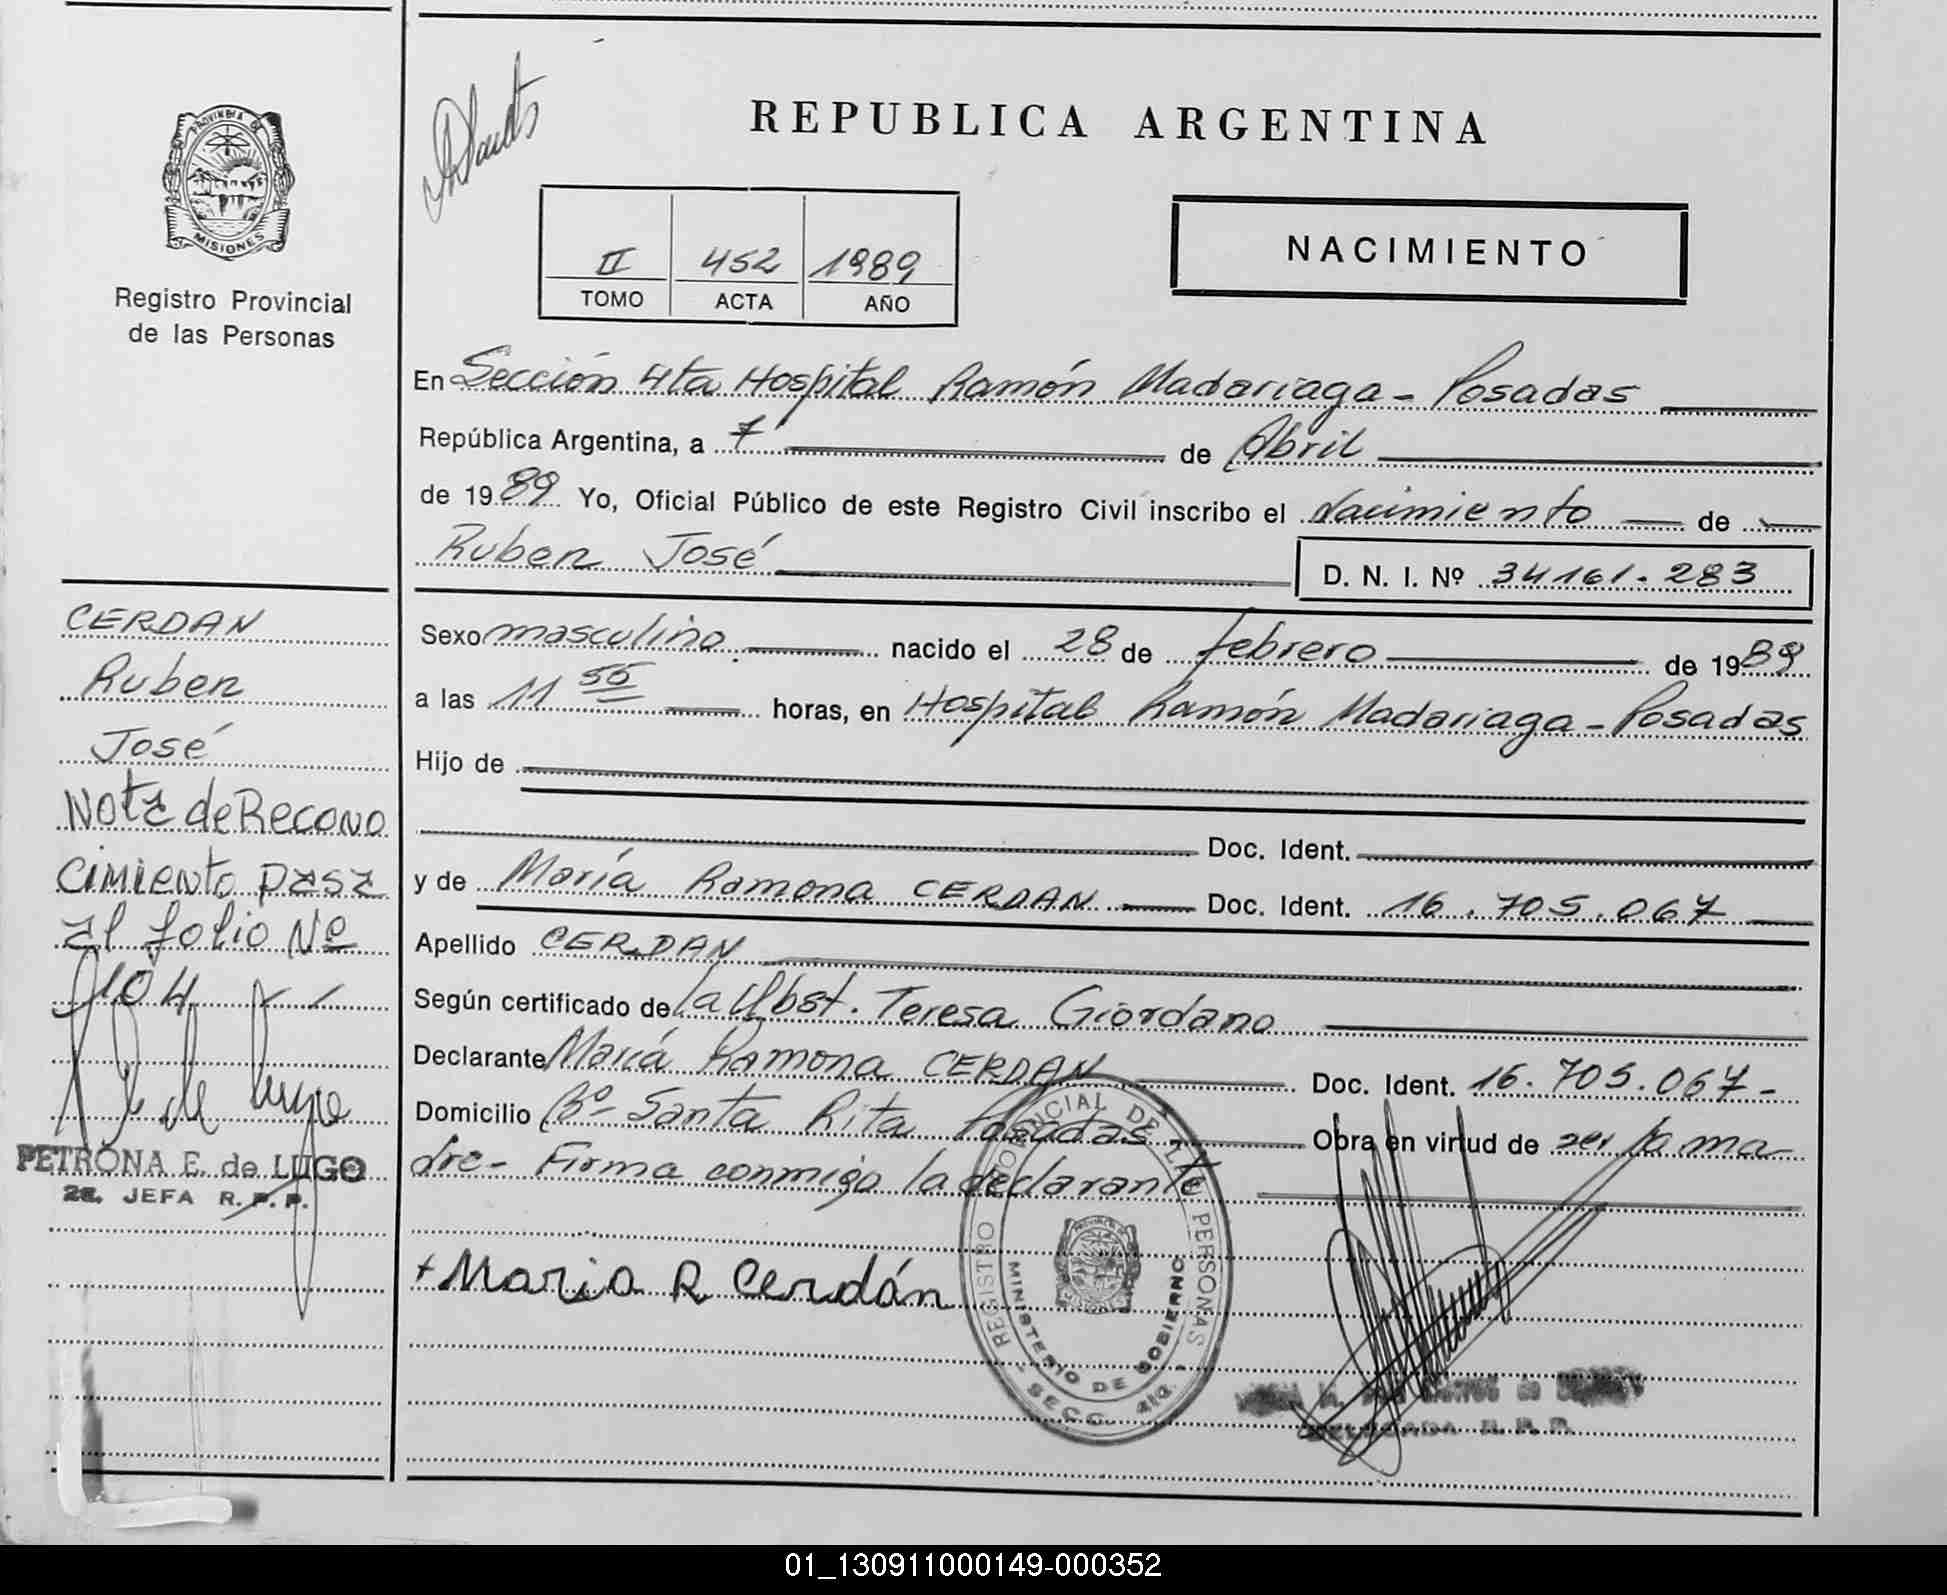 PROVINCIA DE
MISIONES
Registro Provincial
de las Personas
REPUBLICA ARGENTINA
NACIMIENTO
II 452 1989
TOMO ACTA AÑO
En Sección 4ta Hospital Ramón Madariaga - Posadas
República Argentina, a 7 de Abril
de 1989 Yo, Oficial Público de este Registro Civil inscribo el Nacimiento de
Ruben José D. N. I. Nº 34161.283
Sexo masculino. nacido el 28 de febrero de 1989
a las 11 55 horas, en Hospital Ramón Madariaga - Posadas
Hijo de
Doc. Ident.
y de María Ramona CERDAN Doc. Ident. 16.705.067
Apellido CERDAN
Según certificado de la Obst. Teresa Giordano
Declarante María Ramona CERDAN Doc. Ident. 16.705.067-
Domicilio Bº- Santa Rita Posadas - Obra en virtud de ser la ma-
dre- Firma conmigo la declarante
+ Maria R Cerdán
REGISTRO PROVINCIAL DE LAS PERSONAS
MINISTERIO DE GOBIERNO
- SECC. 4ta. -
DELEGADA R. P. P.
CERDAN
Ruben
José
Nota de Recono
cimiento pasa
al folio Nº
104
P. de Lugo
PETRONA E. de LUGO
2a. JEFA R. P. P.
01_130911000149-000352